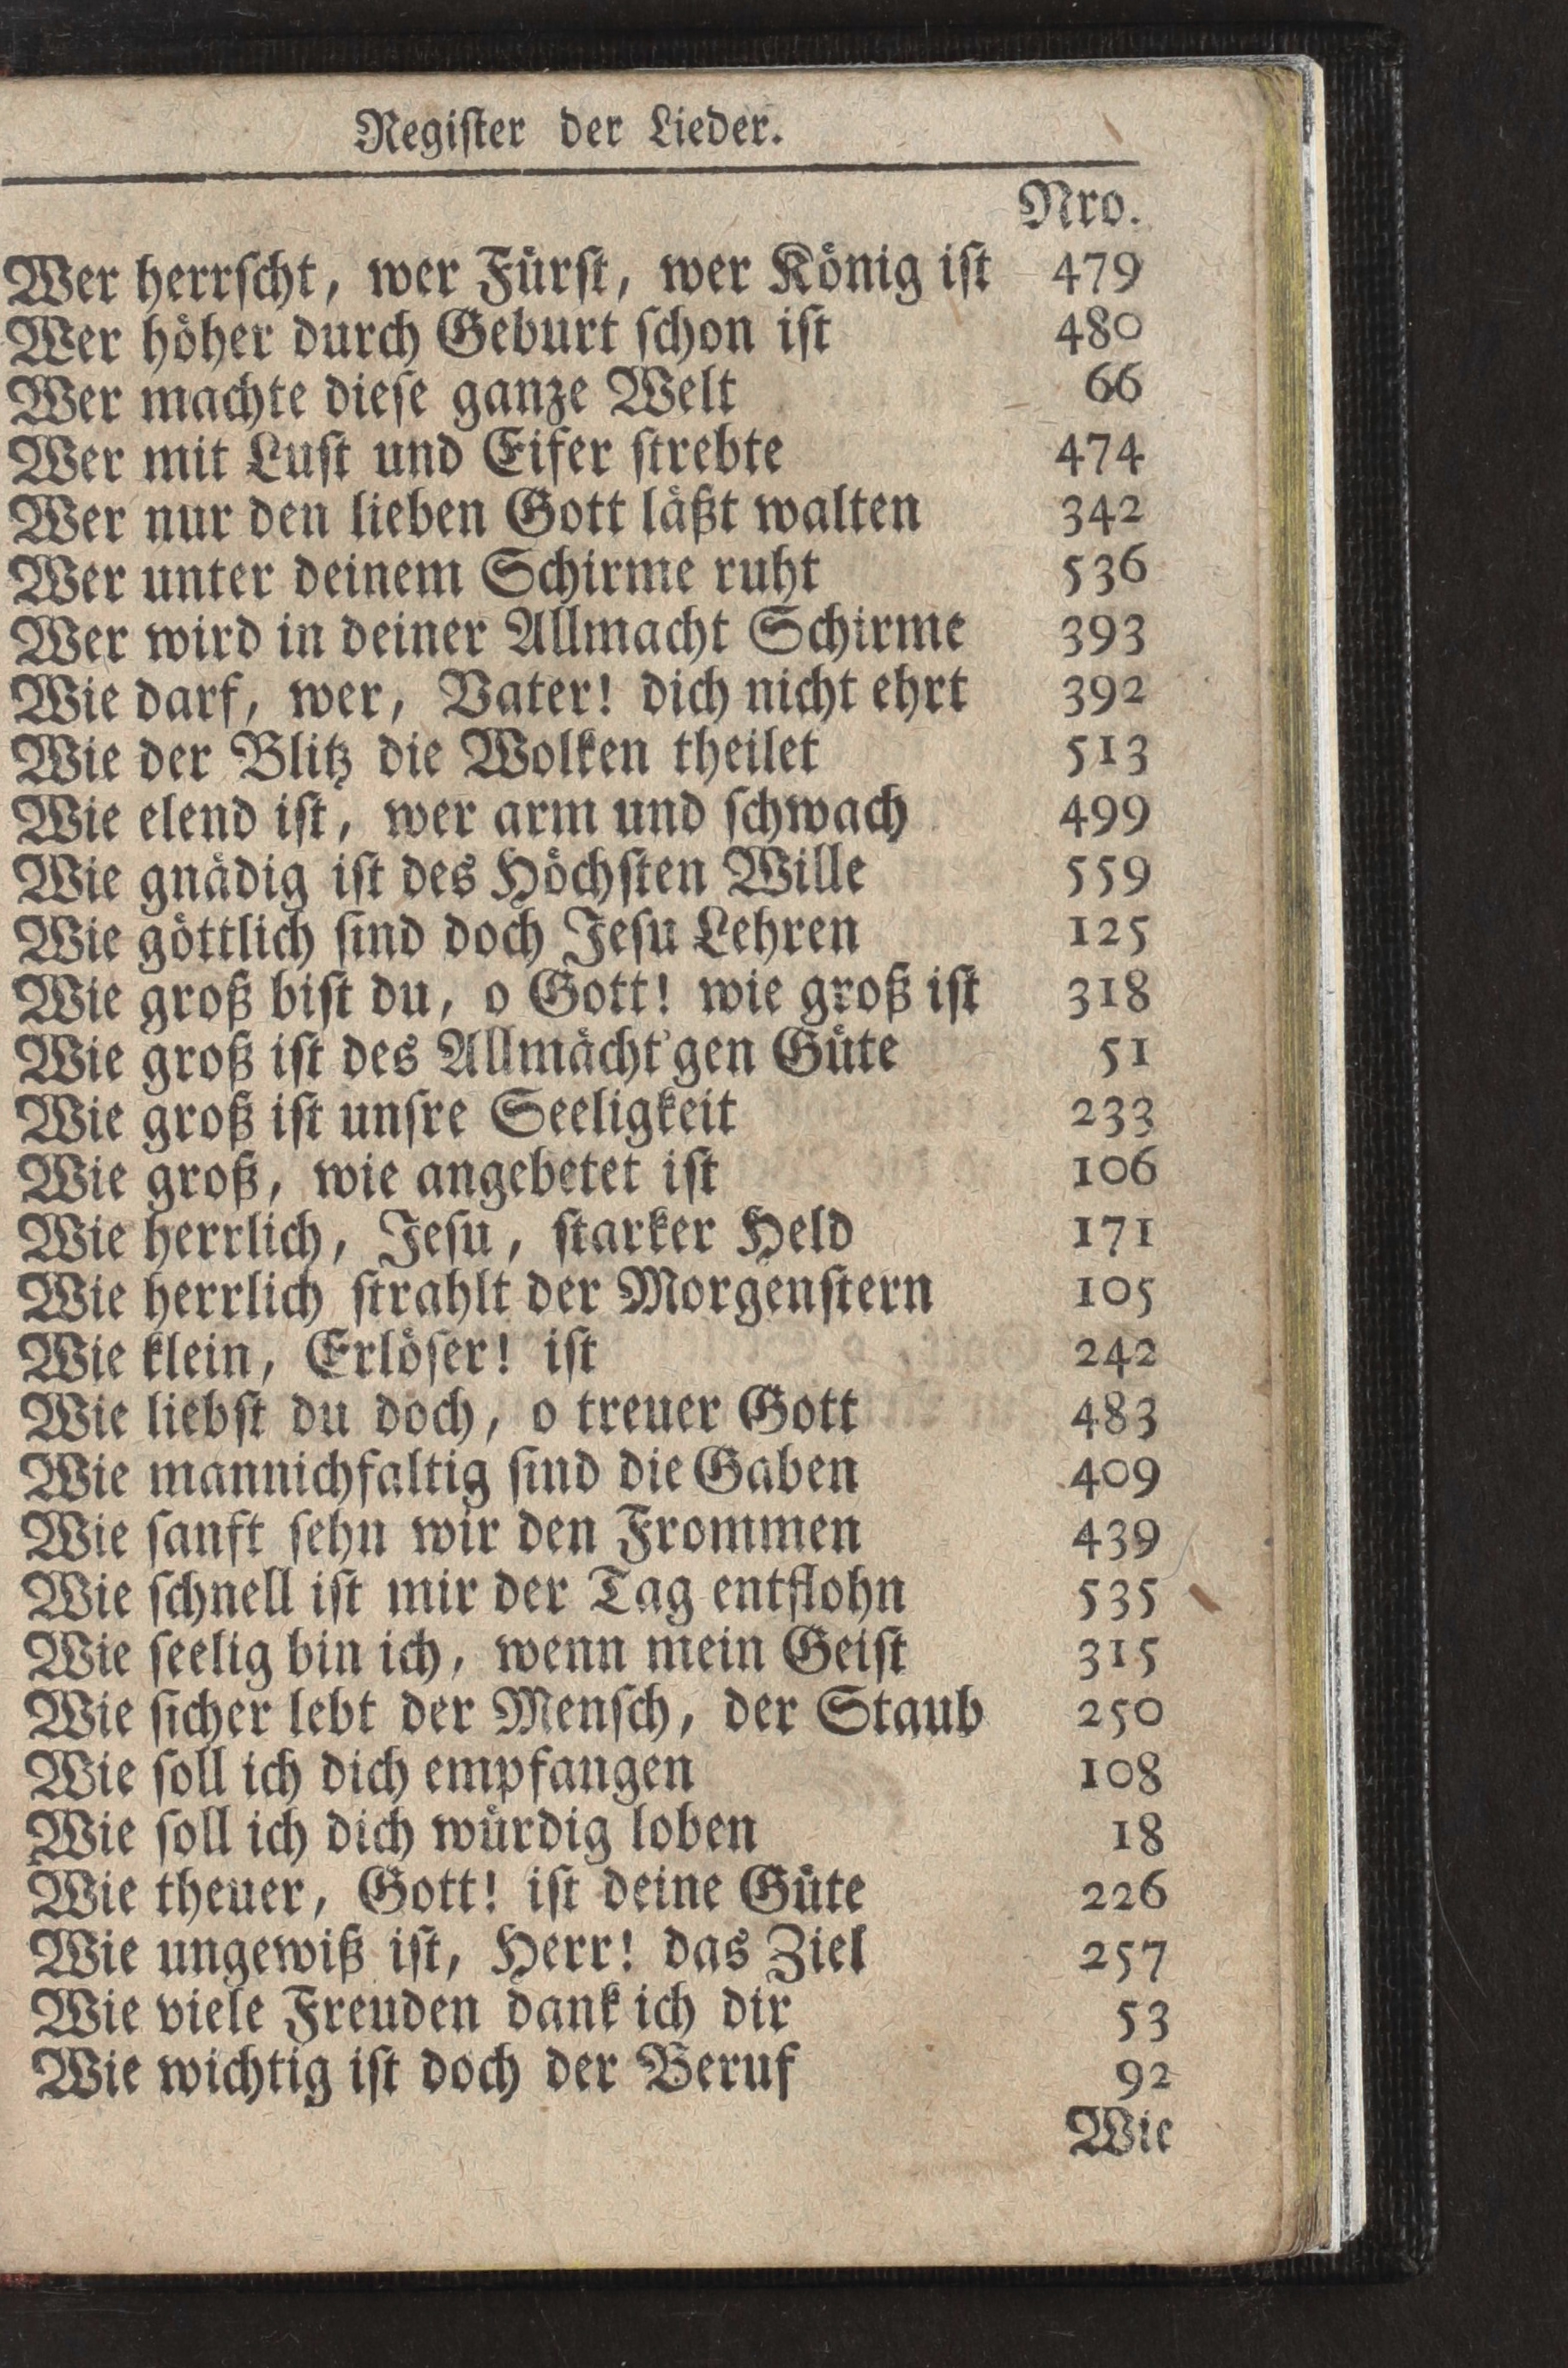 Regiſter der Lieder.
Nro.
Wer herrſcht, wer Fürſt, wer König iſt 479
Wer höher durch Geburt ſchon iſt 480
Wer machte dieſe ganze Welt 66
Wer mit Luſt und Eifer ſtrebte 474
Wer nur den lieben Gott läßt walten 342
Wer unter deinem Schirme ruht 536
Wer wird in deiner Allmacht Schirme 393
Wie darf, wer, Vater! dich nicht ehrt 392
Wie der Blitz die Wolken theilet 513
Wie elend iſt, wer arm und ſchwach 499
Wie gnädig iſt des Höchſten Wille 559
Wie göttlich ſind doch Jeſu Lehren 125
Wie groß biſt du, o Gott! wie groß iſt 318
Wie groß iſt des Allmächt'gen Güte 51
Wie groß iſt unſre Seeligkeit 233
Wie groß, wie angebetet iſt 106
Wie herrlich, Jeſu, ſtarker Held 171
Wie herrlich ſtrahlt der Morgenſtern 105
Wie klein, Erlöſer! iſt 242
Wie liebſt du doch, o treuer Gott 483
Wie mannichfaltig ſind die Gaben 409
Wie ſanft ſehn wir den Frommen 439
Wie ſchnell iſt mir der Tag entflohn 535
Wie ſeelig bin ich, wenn mein Geiſt 315
Wie ſicher lebt der Menſch, der Staub 250
Wie ſoll ich dich empfangen 108
Wie ſoll ich dich würdig loben 18
Wie theuer, Gott! iſt deine Güte 226
Wie ungewiß iſt, Herr! das Ziel 257
Wie viele Freuden dank ich dir 53
Wie wichtig iſt doch der Beruf 92
Wie